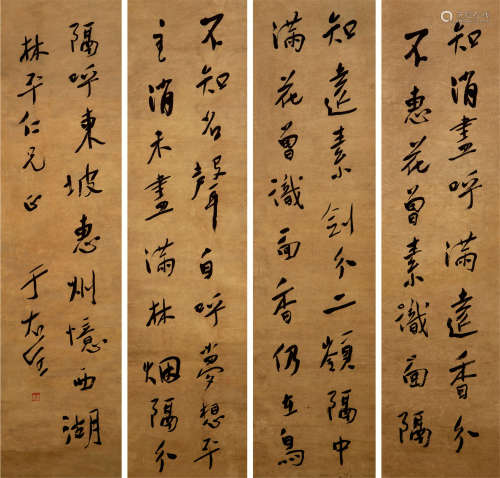 知消盡呼滿遠香分
不惠花曾素識面隔
知遠素劍分二嶺隔中
滿花曾識面香仍在鳥
不知名聲自呼夢想平
主消未盡滿林烟隔分
隔呼東坡惠州憶西湖
林平仁兄正
于右任